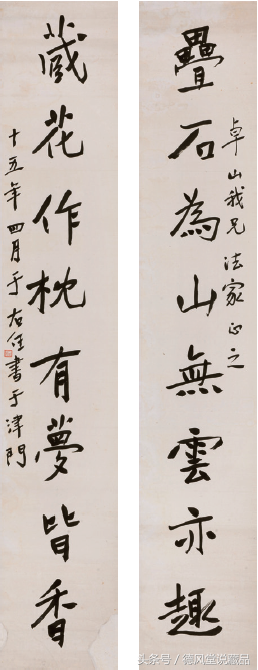 疊石為山無雲亦趣
卓山我兄法家正之
蔵花作枕有夢皆香
十五年四月于右任書于津門
头条号/德风堂说藏品